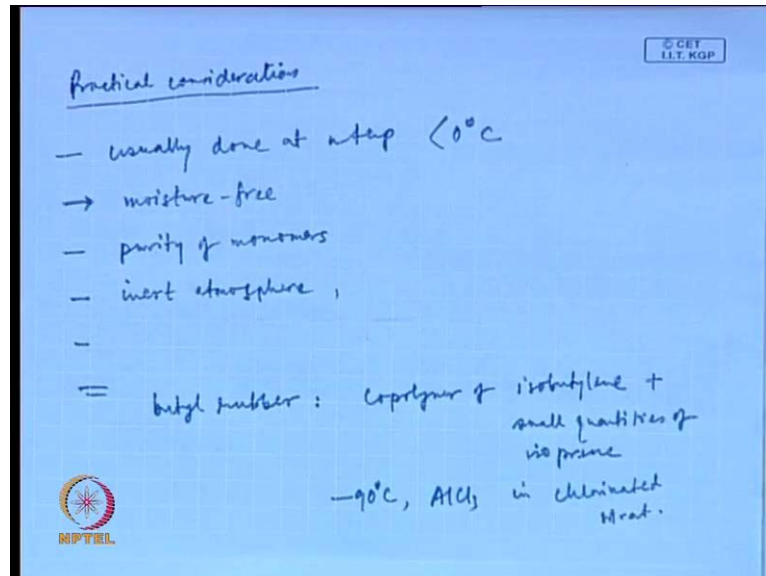 © CET
I.I.T. KGP
Practical considerations
— usually done at temp < 0°C
→ moisture-free
— purity of monomers
— inert atmosphere,
—
= butyl rubber : copolymer of isobutylene +
small quantities of
isoprene
—90°C, AlCl3 in chlorinated
NPTEL